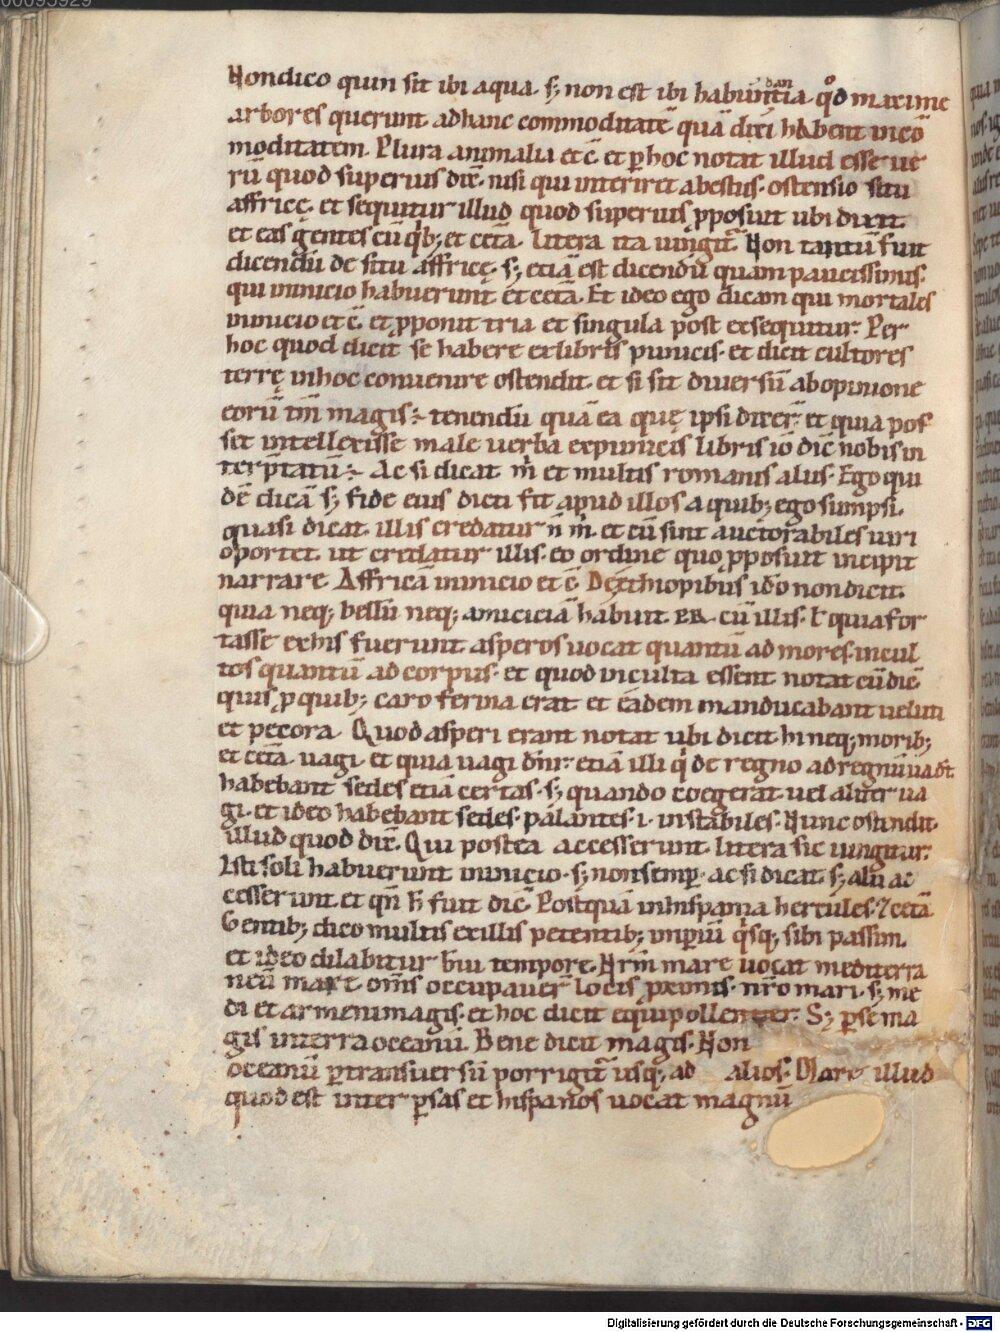 00095929
Non dico quin sit ibi aqua. sꝫ non est ibi habun dan tia. qd̊ maxime
arbores querunt ad hanc commoditatē quā dixi habent incō
moditatem. Plura animalia et c̄. et ꝑ hoc notat illud esse ue
rū quod superius dix̄. nisi qui interiret a bestiis. ostensio situ
affricę. et sequitur illud quod superius ꝓposuit ubi dixit.
et eas gentes cū qͥbꝫ et cetā. Litera ita iungit̄. Non tantū fuit
dicendū de situ affricę. sꝫ etiā est dicendū quam paucissimis.
qui inicio habuerunt et cetā. Et ideo ego dicam qui mortales
inicio et c̄. et ꝓponit tria et singula post exsequitur. Per
hoc quod dicit se habere ex libris punicis. et dicit cultores
terrę in hoc conuenire ostendit. et si sit diuersū ab opinione
eorū tm̄ magis ÷ tenendū quā ea quę ipsi dixer̄. et quia pos
set intellexisse male uerba ex punicis libris iō dic̄ nobis in
terp̄tatū ÷. Ac si dicat. m̄ et multis romanis aliis. Ego qui
dē dicā sꝫ fide eius dicti fit apud illos a quibꝫ ego sumpsi.
quasi dicat. illis credatur n̄ m̄. et cū sint auctorabiles uiri
oportet. ut credatur illis. eo ordine quo ꝓposuit incipit
narrare Affricā inicio et c̄. De ethiopibus idō non dicit.
quia neqꝫ bellū neqꝫ amiciciā habuit. RR. cū illis. ł quia for
tasse ex his fuerunt asperos uocat quantū ad mores. incul
tos quantū ad corpus. et quod inculta essent notat cū dic̄
quis ꝑ quibꝫ caro ferina erat et eadem manducabant ueluti
et pecora. Quod asperi erant notat ubi dicit hi neqꝫ moribꝫ
et cetā. uagi. et quia uagi dn̄r. etiā illi qͥ de regno ad regnū uadt̄.
habebant sedes etiā certas. sꝫ quando coegerat. uel aliter ua
gi. et ideo habebant sedes. palantes .i. instabiles. Nunc ostendit.
illud quod dix̄. Qui postea accesserunt. litera sic iungitur.
Isti soli habuerunt inicio. sꝫ non semꝑ. ac si dicat. sꝫ alii ac
cesserunt. et qn̄ h̄ fuit dic̄. Postquā in hispania hercules. ⁊ cetā.
Gentibꝫ dico multis ex illis petentibꝫ imꝑiū qͥsqꝫ sibi passim.
et ideo dilabitur b̄ui tempore. Nr̄m mare uocat mediterra
neū mare. om̄s occupauer̄ locis ꝓximis. nr̄o mari. sꝫ me
di et armeni magis. et hoc dicit equipollenter. Sꝫ ꝑse ma
gis interra oceanū. Bene dicit magis. Non
oceanū ꝑ transuersū porrigit̄ usqꝫ ad alios. Mare illud
quod est inter ꝑsas et hispanos uocat magnū
Digitalisierung gefördert durch die Deutsche Forschungsgemeinschaft - DFG